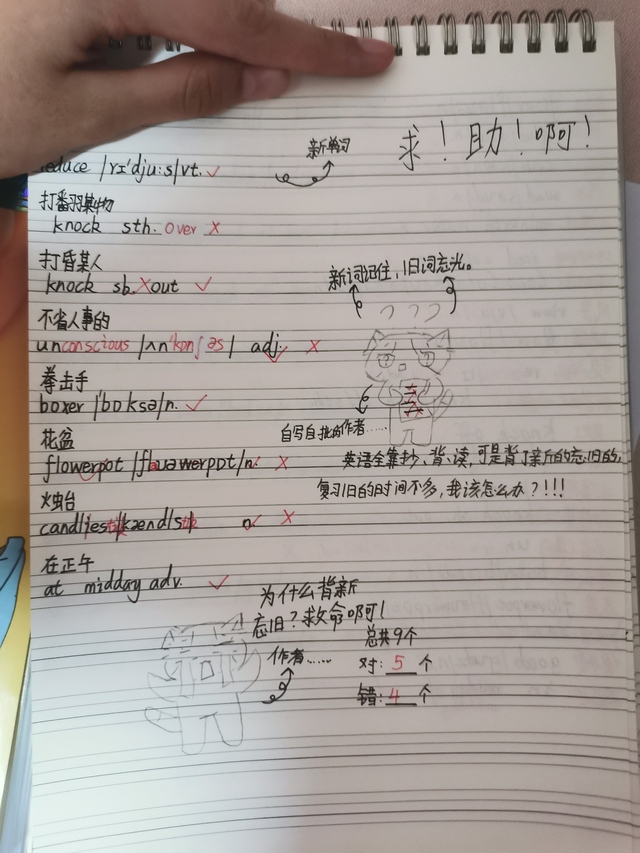 新单词
求！助！啊！
reduce /rɪ'dju:s/vt. ✓
打翻某物
knock sth. over ✗
打昏某人
knock sb. out ✓
新词记住，旧词忘光。
不省人事的
unconscious /ʌn'kɒnʃəs/ adj. ✗
拳击手
boxer /'bɒksə/n. ✓
自写自批的作者……
花盆
flowerpot /flauəwerpɒt/n. ✗
英语全靠抄、背、读，可是背了新的忘旧的，
复习旧的时间不多，我该怎么办？!!!
烛台
n. ✗
在正午
at midday adv. ✓
为什么背新
忘旧？救命啊！
作者……
总共9个
对：5个
错：4个